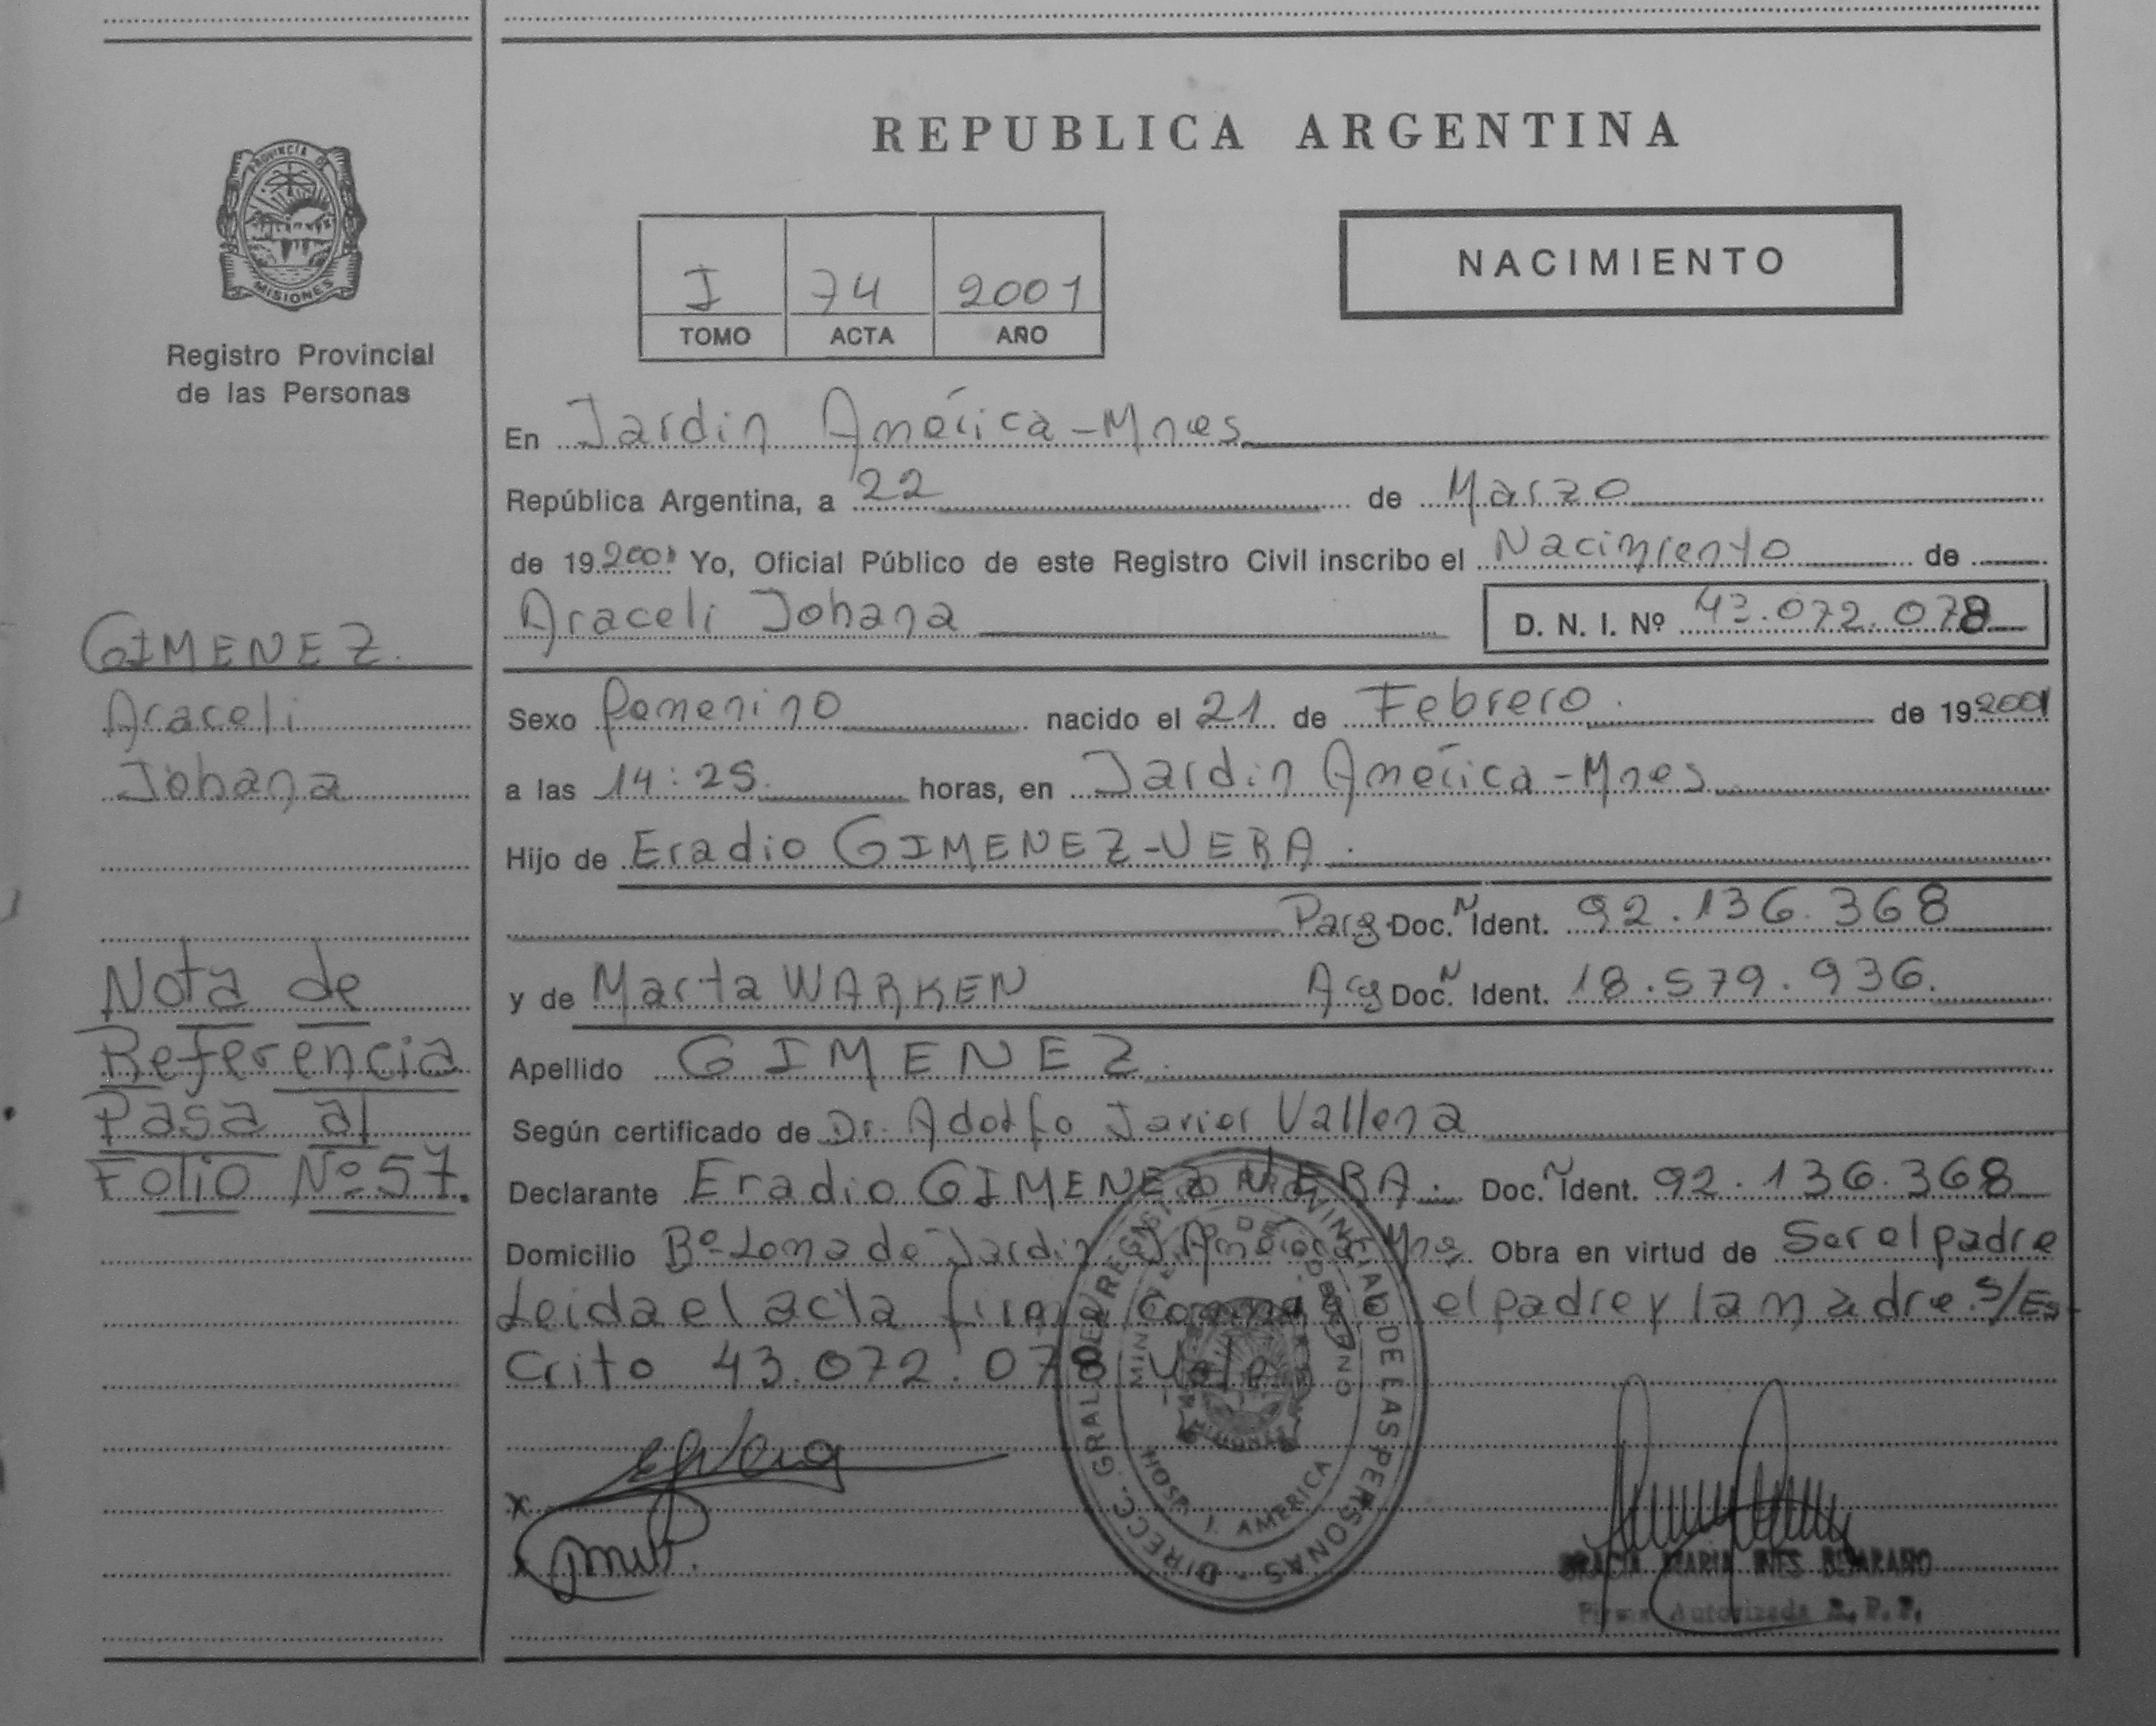 REPUBLICA ARGENTINA
PROVINCIA DE
MISIONES
Registro Provincial
de las Personas
I 74 2001
TOMO ACTA AÑO
NACIMIENTO
En Jardín América-Mnes
República Argentina, a 22 de Marzo
de 19 2001 Yo, Oficial Público de este Registro Civil inscribo el Nacimiento de
Araceli Johana D. N. I. Nº 43.072.078
GIMENEZ.
Araceli
Johana
Sexo femenino nacido el 21 de Febrero. de 19 2001
a las 14:25 horas, en Jardín América-Mnes
Hijo de Eradio GIMENEZ-VERA.
Parg Doc. N Ident. 92.136.368
y de Marta WARKEN Arg Doc. N Ident. 18.579.936.
Apellido GIMENEZ.
Según certificado de Dr. Adolfo Javier Vallena
Declarante Eradio GIMENEZ VERA. Doc. N Ident. 92.136.368
Domicilio Bº Loma de Jardín J América Mns. Obra en virtud de Ser el padre
Leida el acta el padre y la madre. S/Es-
crito 43.072.078 Vale
Nota de
Referencia
Pasa al
Folio Nº 57.
DIRECC. GRAL DE REGIST PROVINCIAL DE LAS PERSONAS
HOSP. J. AMERICA
MARIA INES
Firma Autorizada R. P. P.